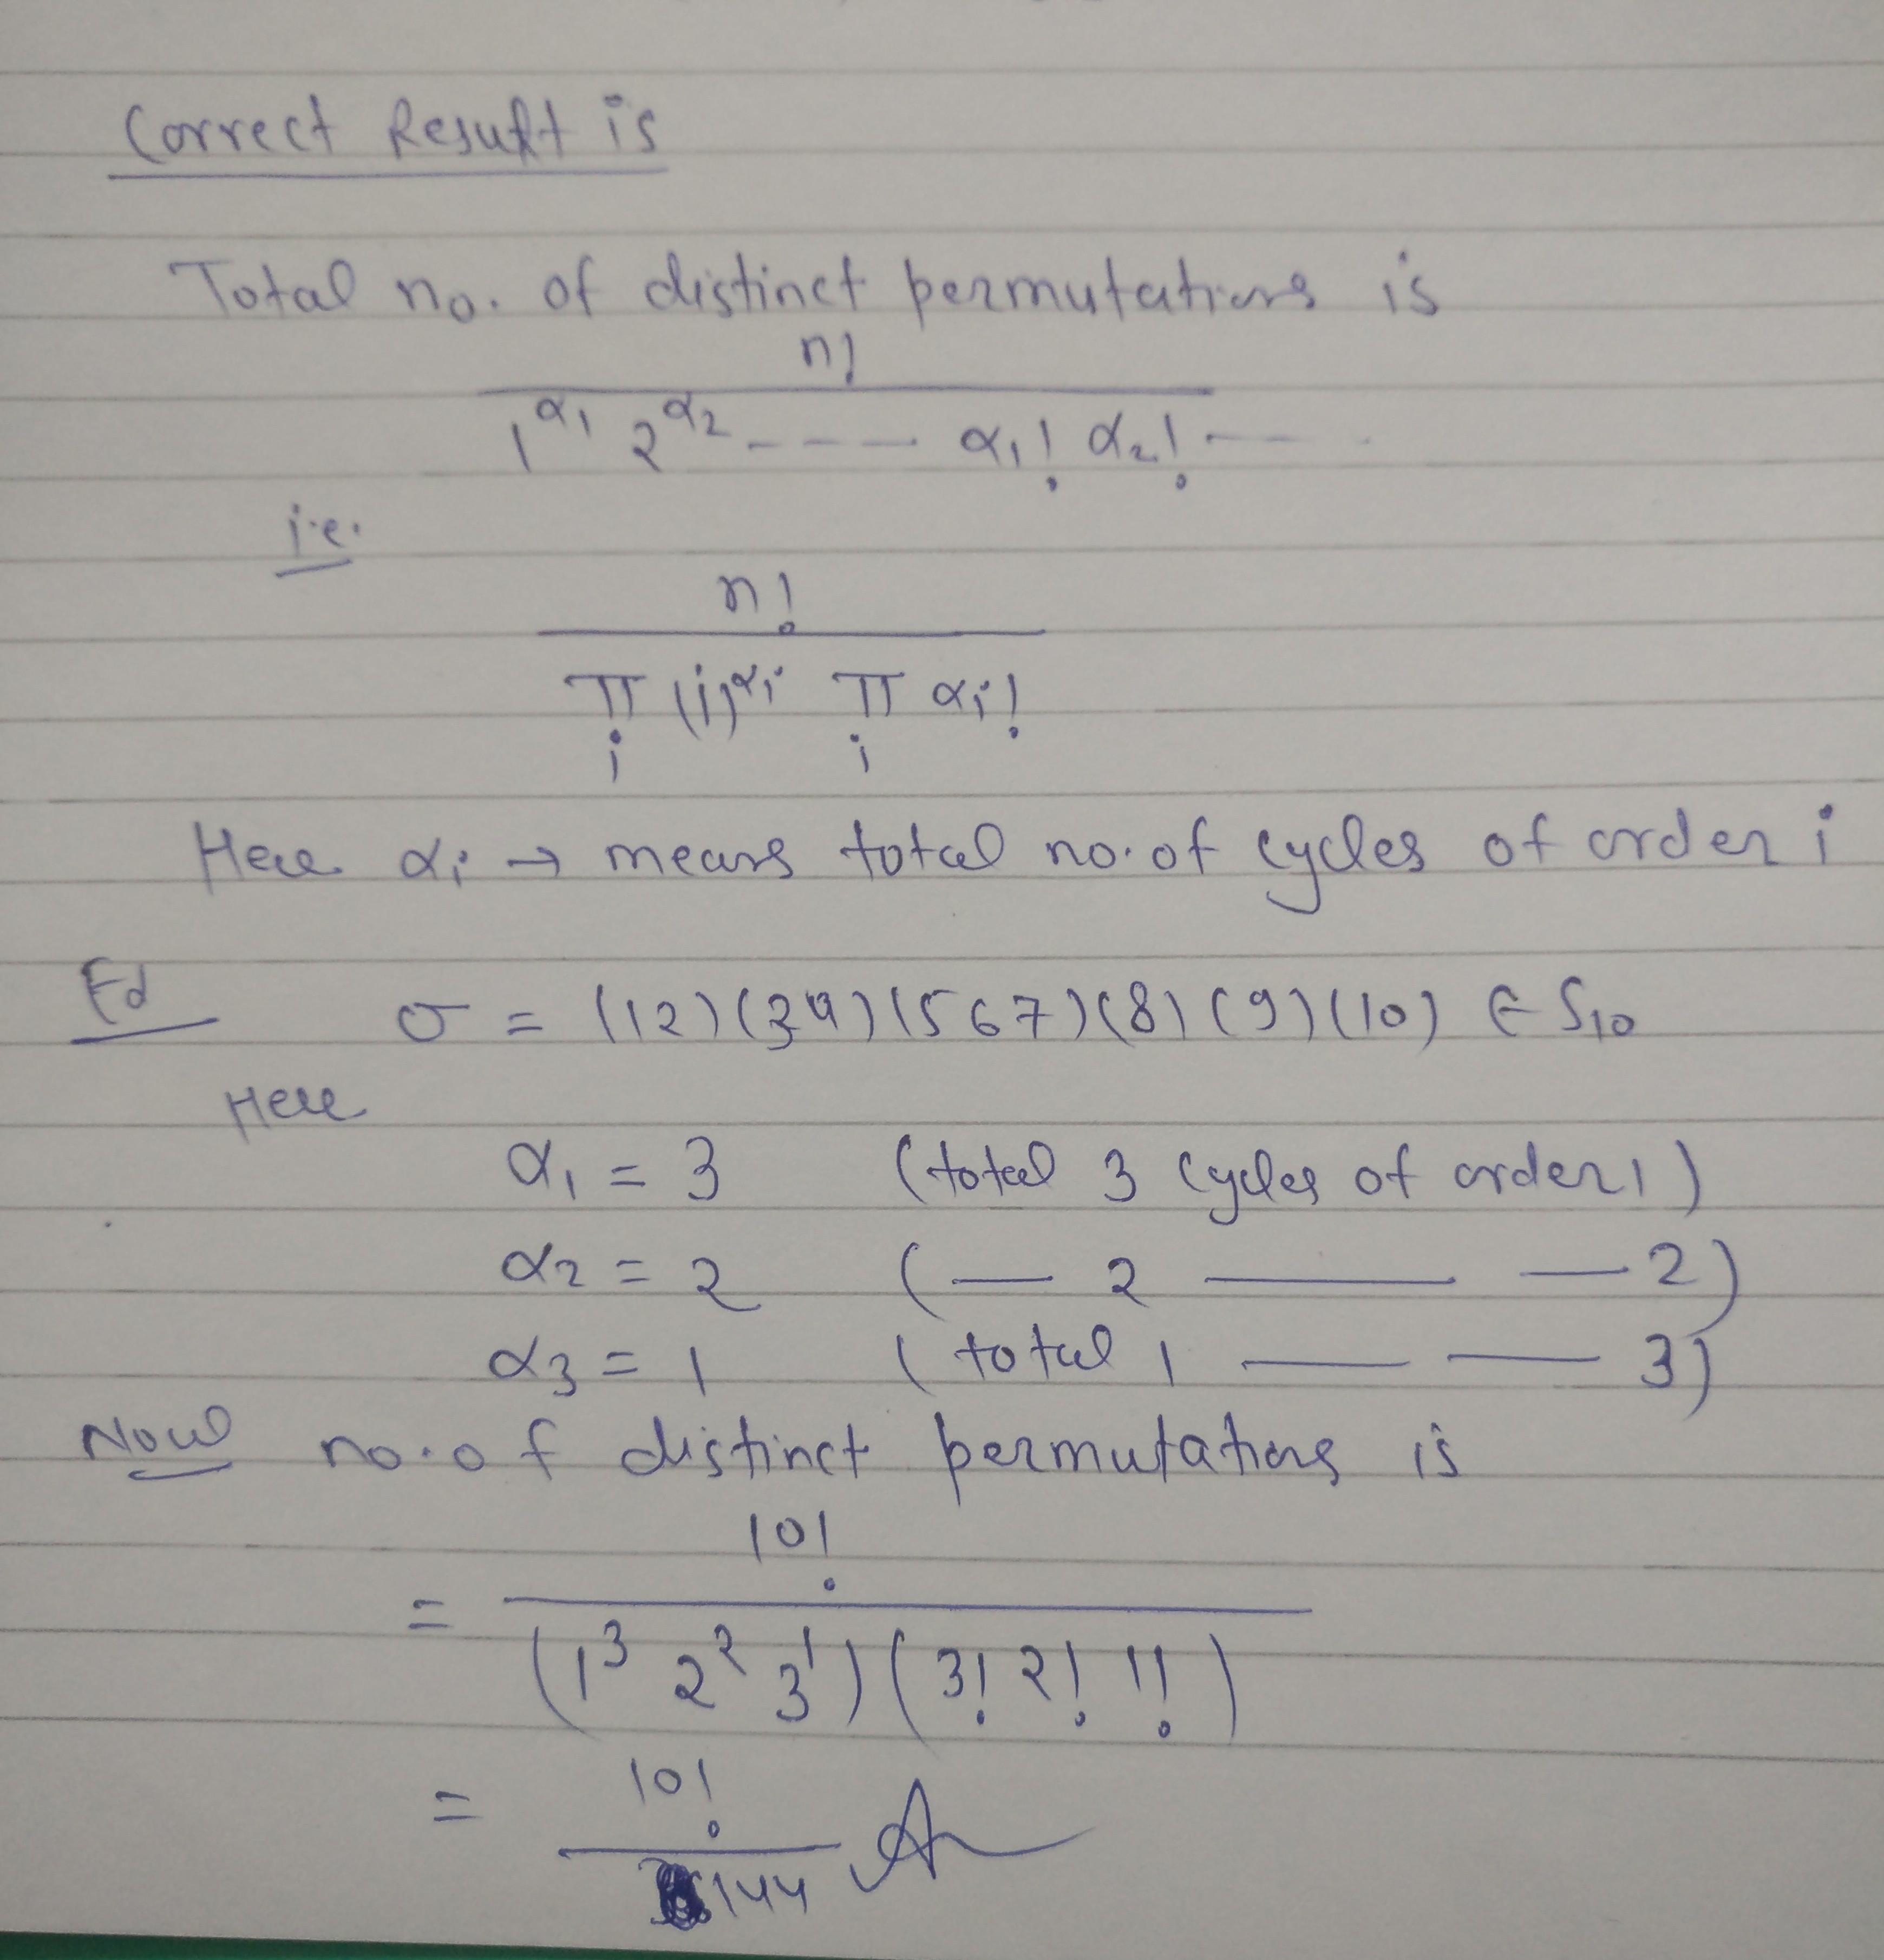 Correct Result is
Total no. of distinct permutations is
n!
1^α1 2^α2 ---- α1! α2! ---
i.e.
n!
π (i)^αi π αi!
i i
Here αi → means total no. of cycles of order i
σ = (12)(34)(567)(8)(9)(10) ∈ S10
Here
α1 = 3 (total 3 cycles of order 1)
α2 = 2 (— 2 —— — 2)
α3 = 1 (total 1 — — 3)
Now no. of distinct permutations is
10!
=
(1^3 2^2 3^1)(3! 2! 1!)
10!
=
144